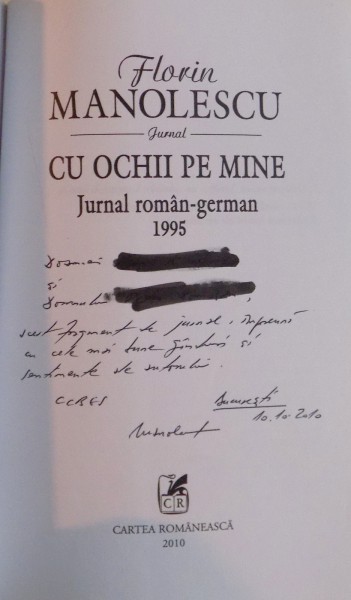 Florin
MANOLESCU
Jurnal
CU OCHII PE MINE
Jurnal român-german
1995
Doamnei
și
Domnului ,
acest fragment de jurnal, împreună
cu cele mai bune gânduri și
sentimente ale autorului.
București
10.10.2010
Manolescu
CR
CARTEA ROMÂNEASCĂ
2010